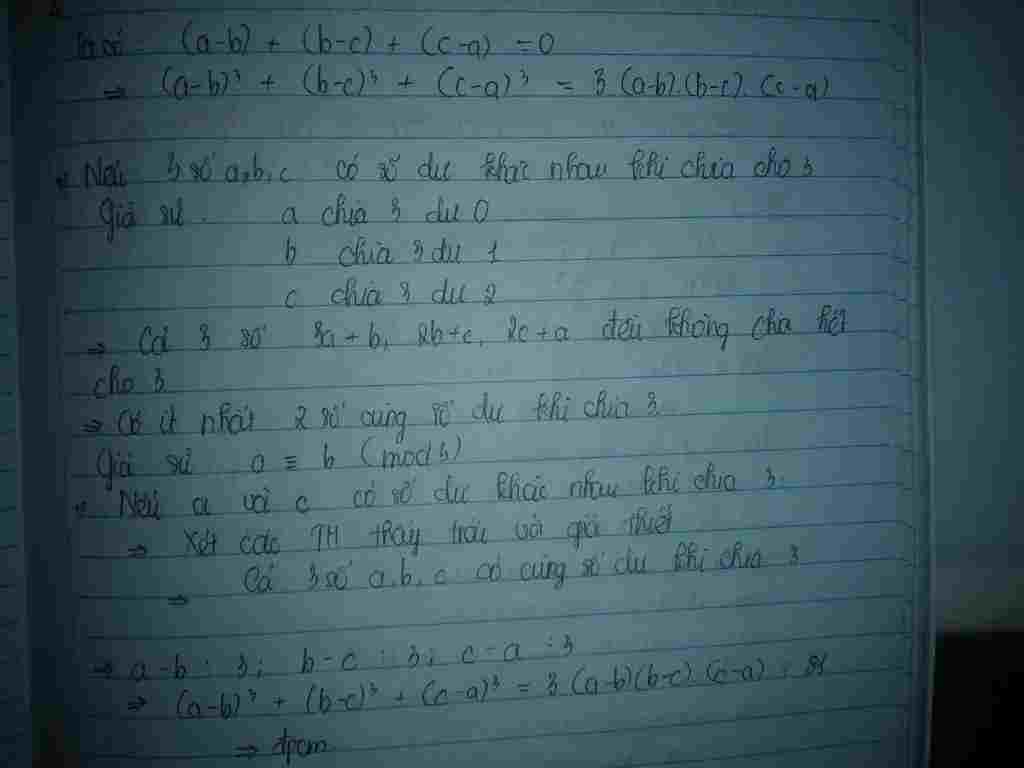 Ta có (a-b) + (b-c) + (c-a) = 0
⇒ (a-b)³ + (b-c)³ + (c-a)³ = 3 (a-b).(b-c).(c-a)
Nếu 3 số a,b,c có số dư khác nhau khi chia cho 3
Giả sử a chia 3 dư 0
b chia 3 dư 1
c chia 3 dư 2
⇒ Cả 3 số + b, 2b+c, 2c+a đều không chia hết
cho 3
⇒ Có ít nhất 2 số cùng số dư khi chia 3
Giả sử a ≡ b (mod 3)
Nếu a và c có số dư khác nhau khi chia 3.
⇒ Xét các TH thấy trái với giả thiết
⇒ Cả 3 số a,b,c có cùng số dư khi chia 3
⇒ a-b ⋮ 3; b-c ⋮ 3; c-a ⋮ 3
⇒ (a-b)³ + (b-c)³ + (c-a)³ = 3 (a-b)(b-c).(c-a) ⋮ 81
⇒ đpcm